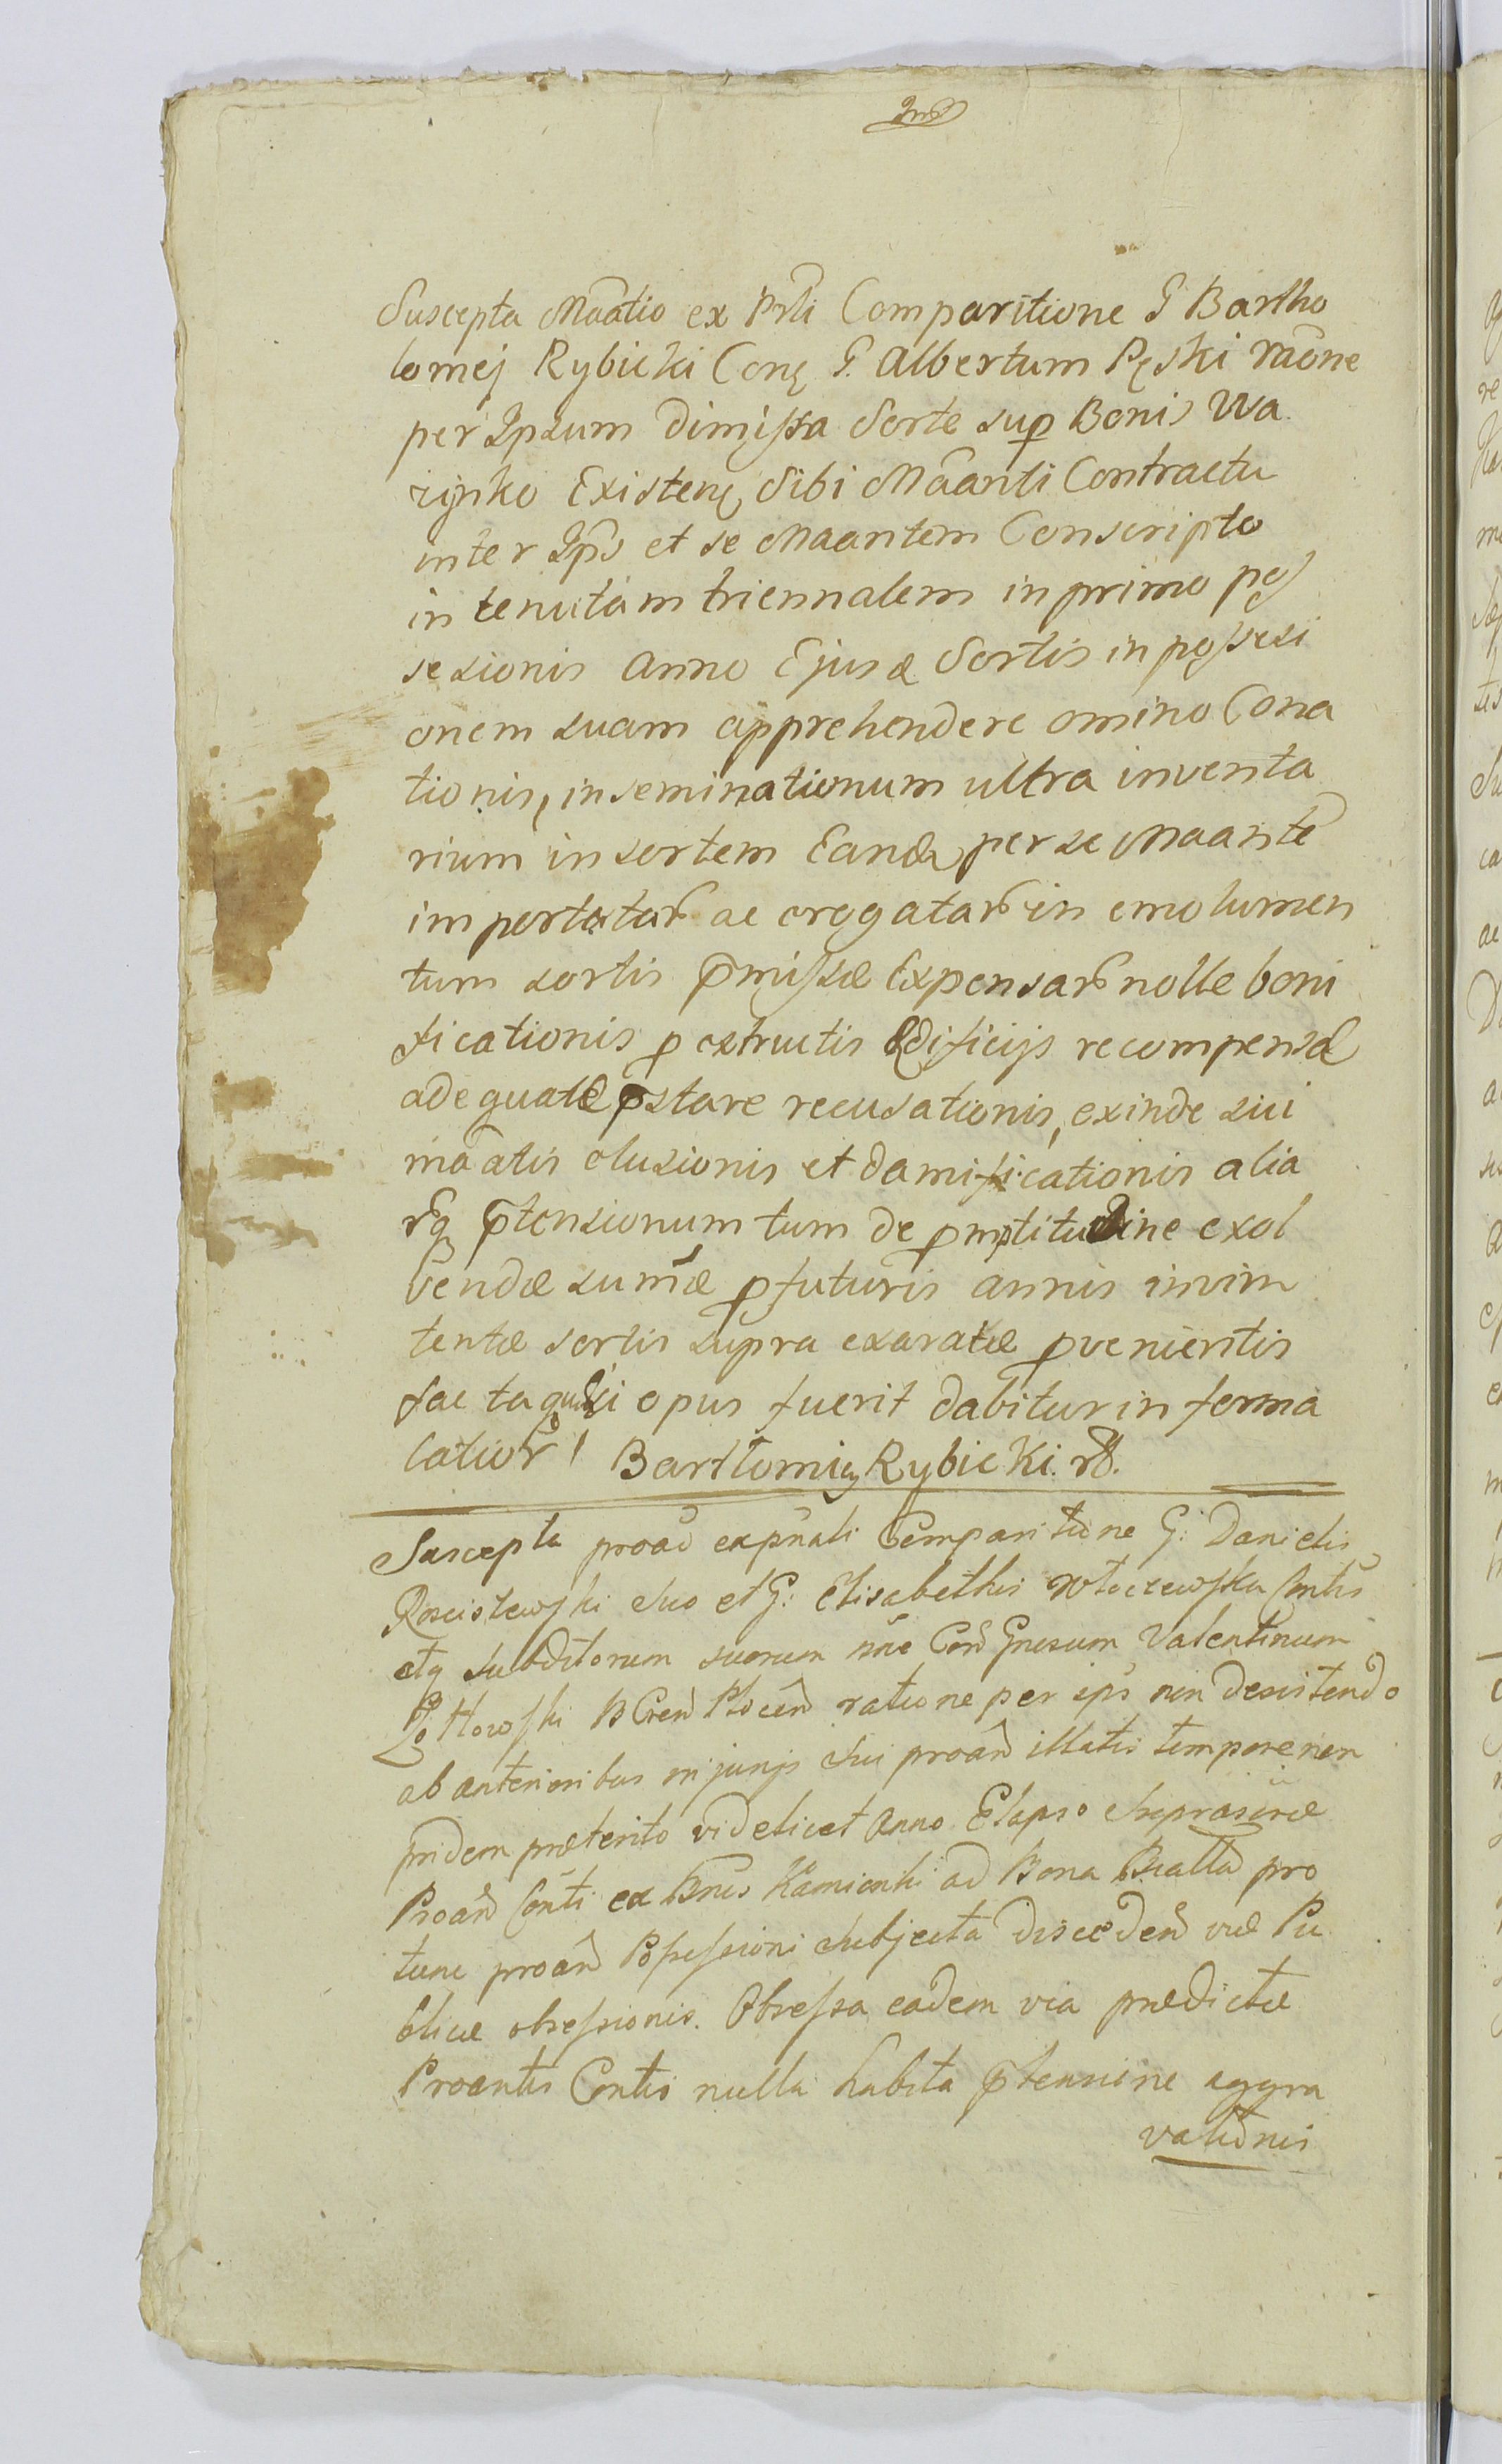 Suscepta Maatio ex Prli Comparitione G Bartho
lomej Rybicki Conę G. Albertum Pęski raone
per Ipsum dimissa Sorte sup Bonis Wa
rynko Existenę Sibi Maanti Contractu
inter Ips et se Maantem Conscripto
in tenutam triennalem in primo pos
sesionis Anno Ejusd Sortis in possesi
onem suam apprehendere omino Cona
tionis, inseminationum ultra inventa
rium in sortem Eandę per se Maante
importatar ac erogatar in emolumen
tum sortis pmissæ Expensar nolle boni
ficationis p extructis Ædificijs recompensæ
adequatæ pstare recusationis, exinde sui
maatis elusionis et damificationis alia
rq ptensionum tum de pmptitudine exol
vendæ sumæ p futuris annis invim
tentæ sortis supra exaratæ pvenientis
facta quasi opus fuerit dabitur in forma
latior! Bartłomiey Rybicki.
Suscepta proao expnali Comparitione G: Danielis
Rosciszewski Suo et G: Elisabethis Włoczewska Contis
etq Subditorum suorum noie Con Gnosum Valentinum
Zottowski BCren Plocen ratione per ips non desistendo
ab anterioribus injurijs Sui proan illatis tempore non
pridem præterito videlicet Anno Elapso Suprascriæ
Proan Conti ex Bnis Kamionki ad Bona Bialta pro
tunc proan Possessioni Subjecta discedend viæ Pu
blicæ obsessionis. Obsessa eadem via prædictæ
Proantis Contis nulla habita ptensione aggra
vationis